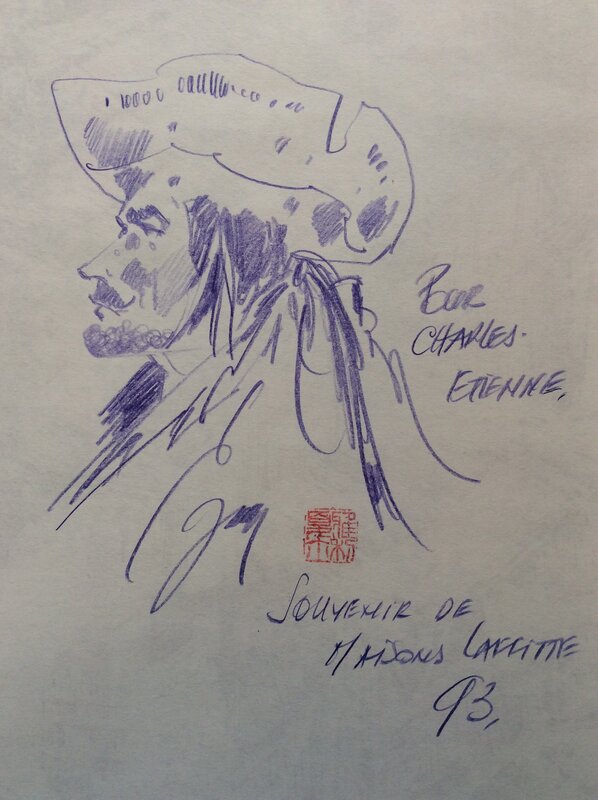 Pour
CHARLES-
ETIENNE,
SOUVENIR DE
MAISONS LAFFITTE
93,